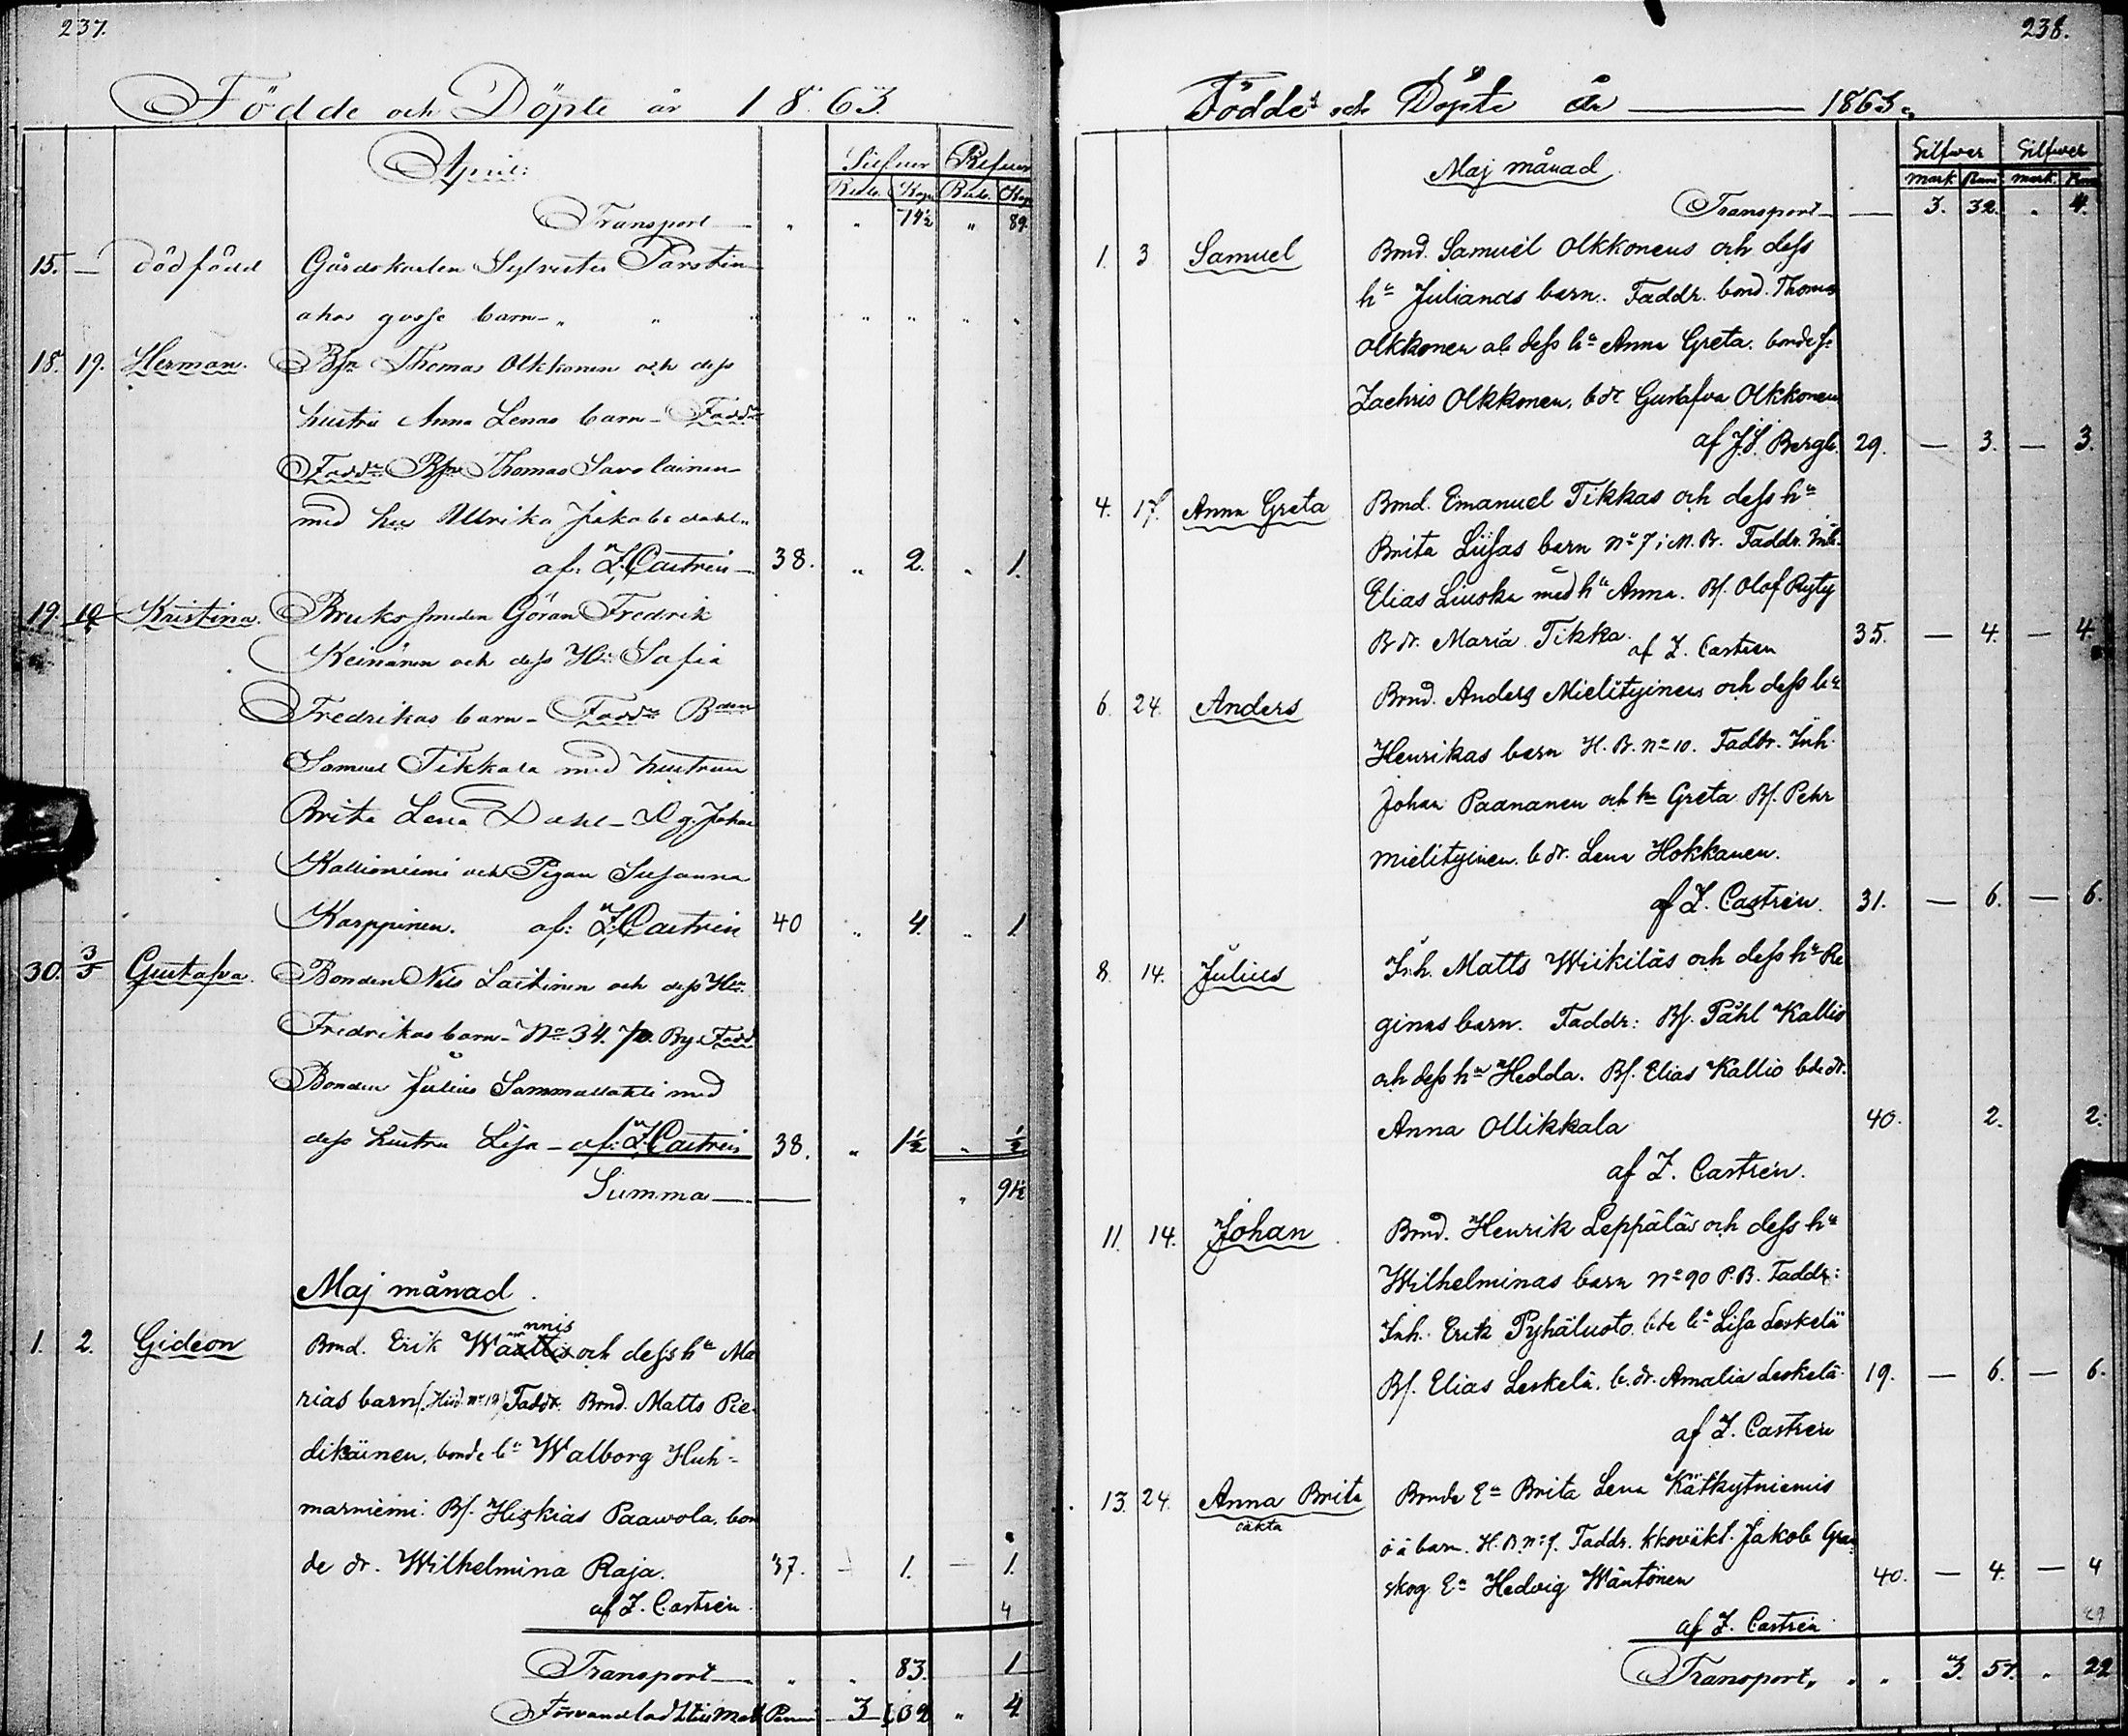 237.
Födde och Döpte år 1863.
April:
Silfver Silfver
Rub. Kop. Rub. Kop.
Transport — " " 74½ " 89.
15. — Dödfödd Gårdskarlen Sylvester Parstin
ahos gosse barn — " " " " " " "
18. 19. Herman. Bsn Thomas Olkkonen och dess
hustru Anna Lenas barn — Faddr
Faddr Bsn Thomas Savolainen
med hu Ullrika Jakobs dahl..
af: Z. Castrén — 38. " 2. " 1.
19. 19 Kristina. Bruks smeden Göran Fredrik
Keinänen och dess Hu: Sofia
Fredrikas barn — Faddr Bden
Samuel Tikkala med hustrun
Brita Lena Dahl — Dg. Johan
Kallioniemi och Pigan Susanna
Karppinen. af: Z. Castrén 40 " 4. " 1
30. 3/5 Gustafva. Bonden Nils Laitinen och dess Hu:
Fredrikas barn — No 34. By. Fadd
Bonden Julius Sammallahti med
dess hustru Lisa — af: Z. Castrén 38. " 1½ " ½
Summa — — " 91½
Maj månad.
nnis
1. 2. Gideon Bond. Erik Wäattis och dess ha Ma
rias barn (Hiid. no 19) Faddr. Bond. Matts Pie-
dikäinen, bonde ha Walborg Huh-
marniemi. Bs. Hiskias Paawola, bon
de dr. Wilhelmina Raja. 37. — 1. — 1.
af Z. Castrén. 4
Transport — " " 83. 1
Förvandlad till Mark Penni — 3 32 " 4
238.
Födde och Döpte År — 1863.
Silfver Silfver
Maj månad mark Penni mark. Penni
Transport — — 3. 32. " 4.
1. 3 Samuel Bond. Samuel Olkkonens och dess
ha Julianas barn. Faddr. bond. Thomas
Olkkonen ah dess ha Anna Greta. bonde s.
Zachris Olkkonen, bdr Gustafva Olkkonen
af J. S. Bergh. 29. — 3. — 3.
4. 17. Anna Greta Bond. Emanuel Tikkas och dess ha
Brita Liisas barn No 7 i M. B. Faddr. Inh.
Elias Liuska med ha Anna. Bs. Olof Ryty
B dr. Maria Tikka. af Z. Castrén 35. — 4. — 4
6. 24. Anders Bond. Anders Mielityinens och dess ha
Henrikas barn H. B. No 10. Faddr. Inh.
Johan Paananen och ha Greta Bs. Pehr
Mielityinen. b dr. Lena Hokkanen.
af Z. Castrén. 31. — 6. — 6.
8. 14. Julius Inh. Matts Wiikiläs och dess ha Re
ginas barn. Faddr: Bs. Påhl Kallio
och dess ha Hedda. Bs. Elias Kallio bde dr.
Anna Ollikkala 40. 2. 2.
af Z. Castrén.
11. 14. Johan Bond. Henrik Leppäläs och dess ha
Wilhelminas barn No 90 P. B. Faddr:
Inh. Erik Pyhäluoto. bde ha Lisa Leskelä
Bs. Elias Leskelä. b. dr. Amalia Leskelä 19. — 6. — 6.
af Z. Castrén
13. 24. Anna Brita Bonde Ea Brita Lena Kätkytniemis
oäkta o ä barn. H. B. No 7. Faddr. kkoväkt. Jakob Gran
skog Ea Hedvig Wäntönen 40. — 4. — 4
af Z. Castrén 29
Transport " " " 3. 57. " 29